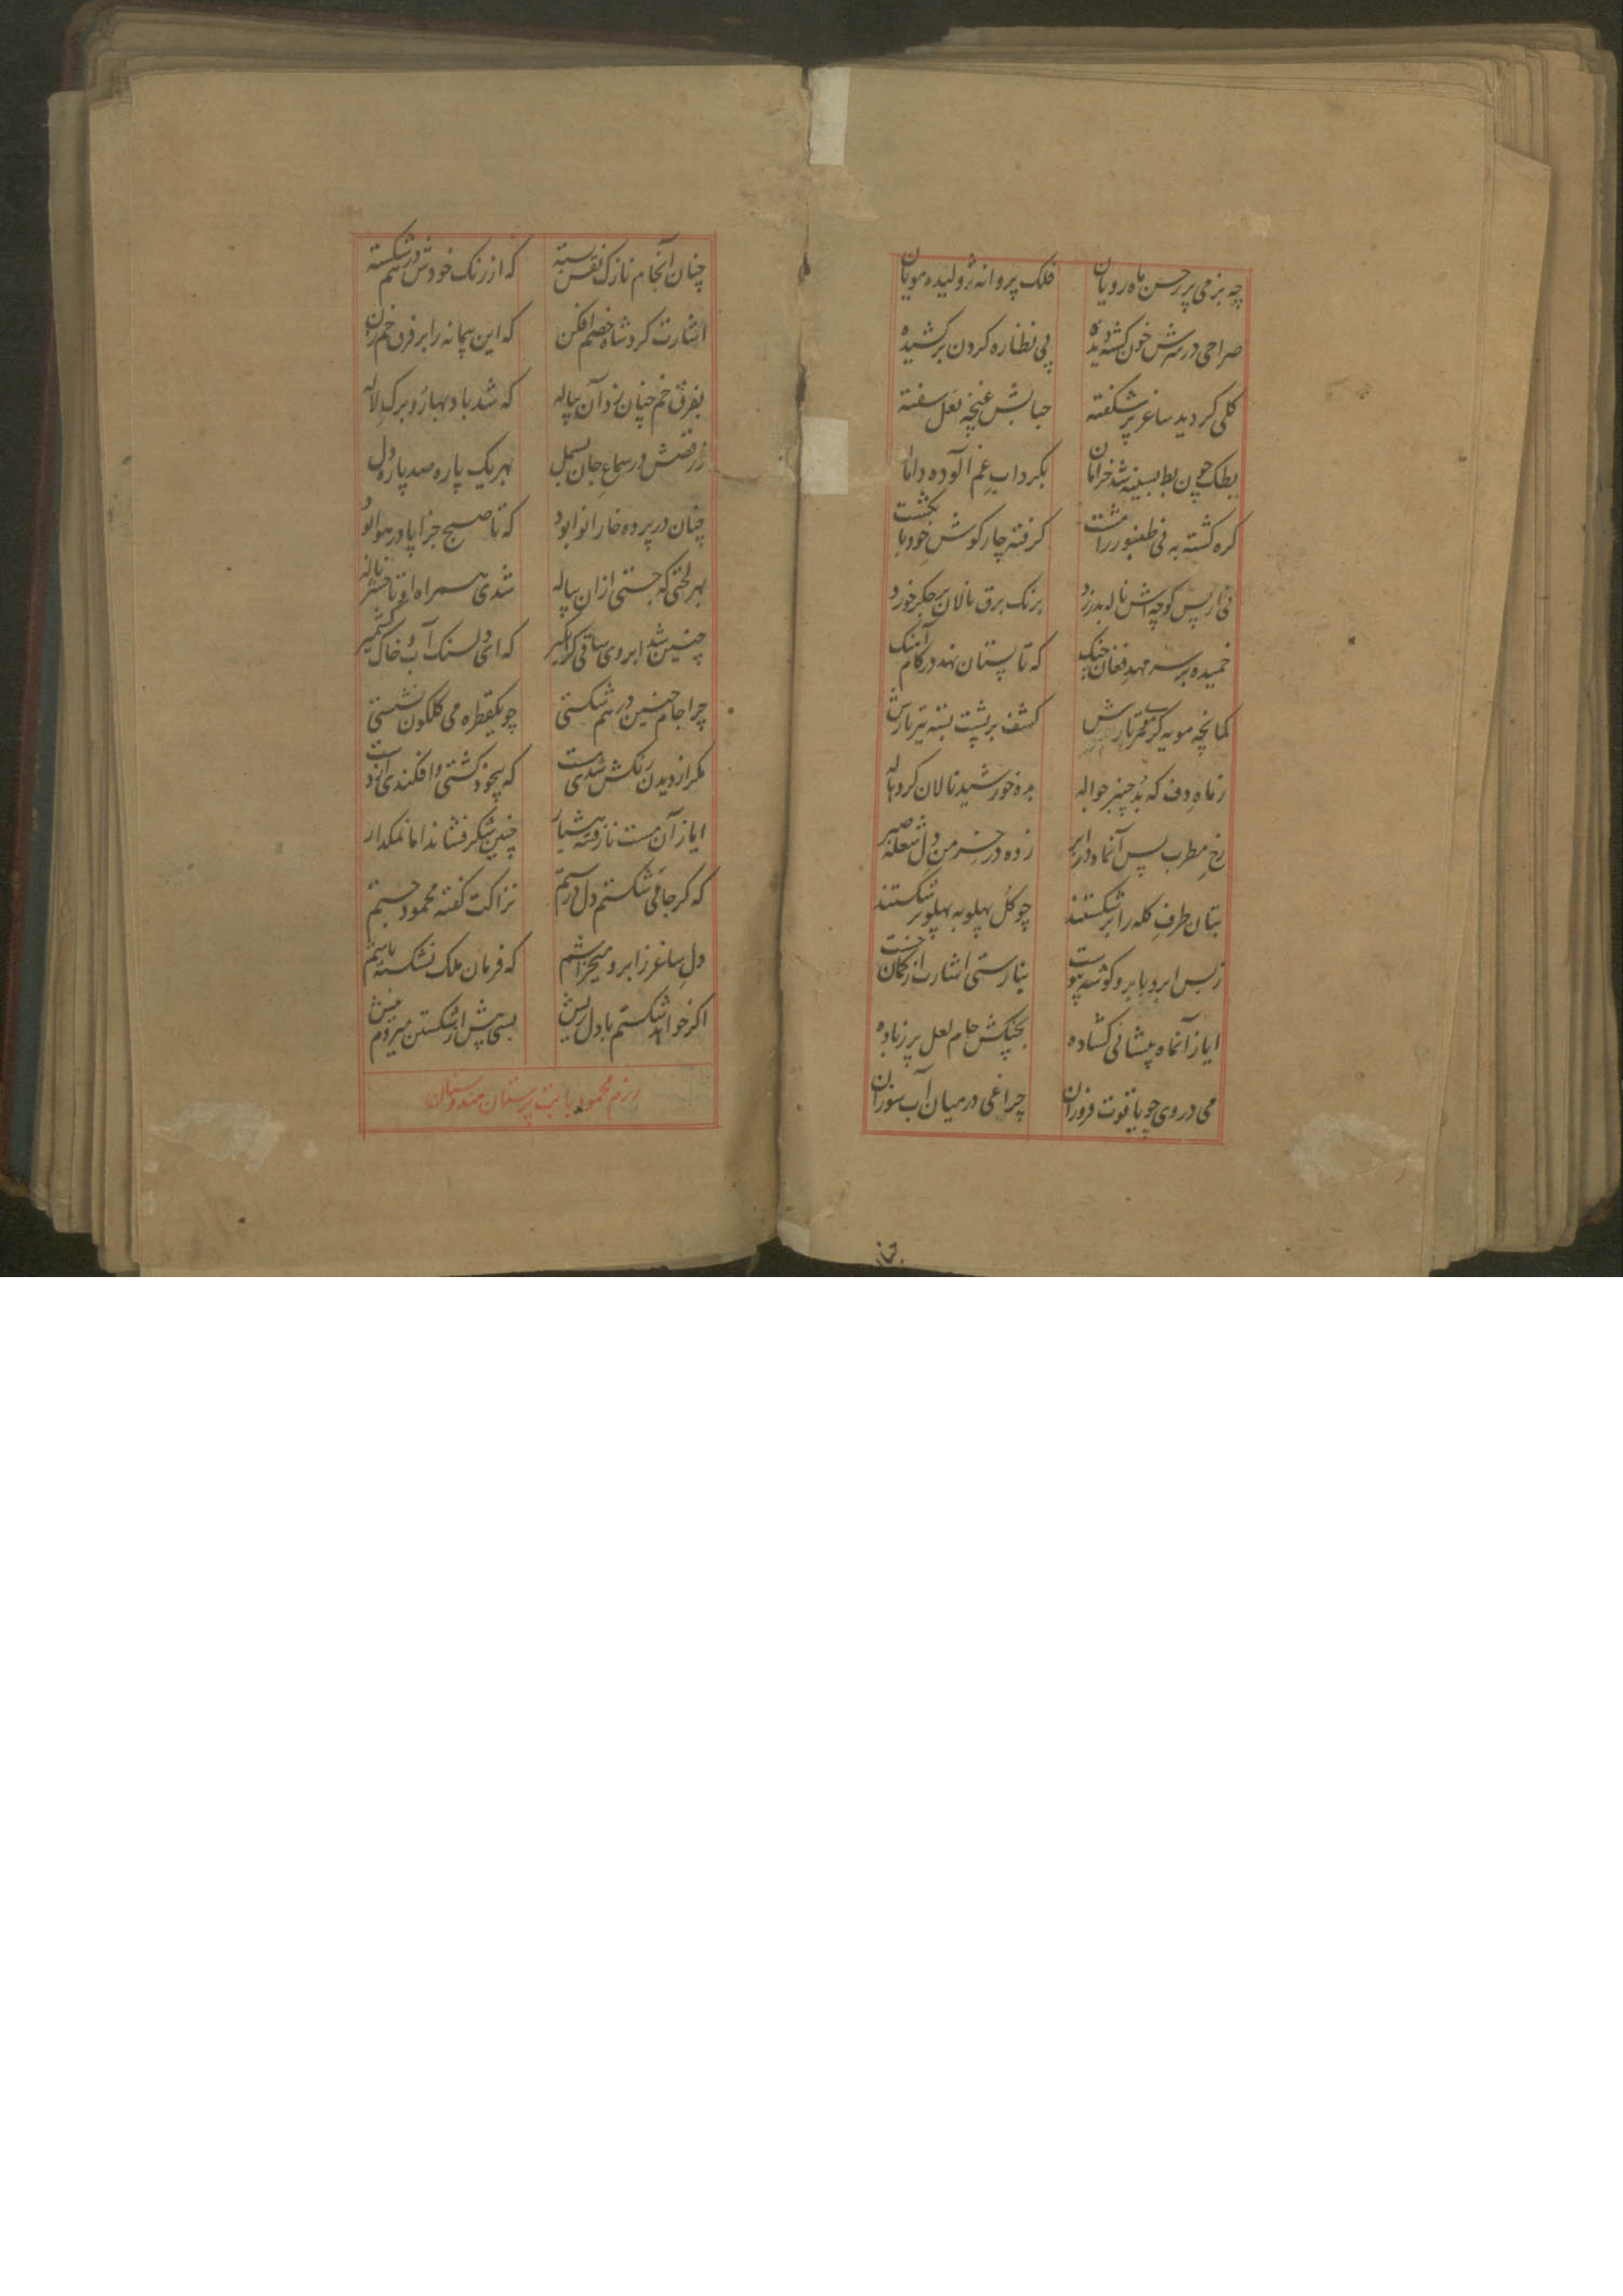 چه بزمی پر ز حسن ماه رویان فلک پروانه ژولیده مویان
صراحی در سرش خون کشیده پی نظاره کردن برکشیده
گلی گردید ساغر پر شکفته حبابش غنچه لعل سفته
بطک چون بط بسینه شد خرامان بکرداب غم آلوده دامان
کره کشته به نی طنبور را مشت کرفته چار کوش خود بانکشت
نی از پس کوچه اش ناله بدزد برنک برق نالان بر جکر خورد
خمیده بر سر مهد فغان چنک که تا پستان نهد در کام آهنک
کمانچه مویه کر تارش کشف بر پشت بسته تیر بارش
ز ماه دف که بد چنبر حواله مه و خورشید نالان کرد هاله
رخ مطرب پس آنماه در ابر زده در خرمن دل شعله صبر
بتان طرف کله را برشکستند چو کل پهلو به پهلو برشکستند
ز بس ابرو بابرو کوشه پیوست نیارستی اشارت از کمان جست
ایاز آنماه پیشانی کشاده بچنکش جام لعل پر ز باده
می در وی چو یاقوت فروزان چراغی در میان آب سوزان
چنان
چنان آنجام نازک نقش بسته که از رنک خودش در هم شکسته
اشارت کرد شاه خصم افکن که این پیمانه را بر فرق خم زن
بفرق خم چنان زد آن پیاله که شد باد بهار و برک لاله
ز رقصش در سماع جان بسمل بهر یک پاره صد پاره دل
چنان در پرده خارا نوا بود که تا صبح جزا پا در هوا بود
بهر لختی که جستی از آن پیاله شدی همراه او تا حشر ناله
چنین شد ابروی ساقی کره کیر که ای دلسنک آب و خاک کشمیر
چرا جام چنین در هم شکستی چو یکقطره می کلکون نشستی
مکر از دیدن رنکش شدی مست که بیخود کشتی و افکندی از دست
ایاز آن مست ناز رفته هشیار چنین شکر فشاند اما نمکدار
که کر جامی شکستم دل درستم نزاکت کفته محمود جستم
دل ساغر ز ابرو میخراشم که فرمان ملک نشکسته باشم
اکر خواهد شکستم با دل ریش بسی پیش از شکستن میروم پیش
رزم محمود با بت پرستان هندوستان